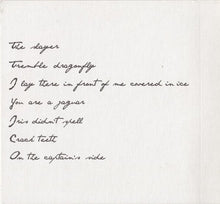 The slayer
Tremble dragonfly
I lay there in front of me covered in ice
You are a jaguar
Iris didn't spell
Cracked teeth
On the captain's side